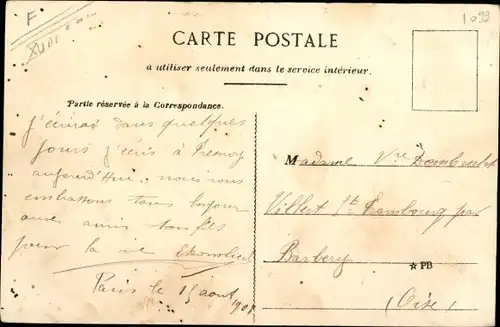 F
XVIII
1.099
CARTE POSTALE
à utiliser seulement dans le service intérieur.
Partie réservée à la Correspondance.
j'écrirai dans quelques
jours j'écris à
aujourd'hui, nous vous
embrassons tous
amis
pour la vie
Paris le 15 aout 1901
Madame Vve
Villers St Frambourg par
Barbery
★ PB
(Oise)